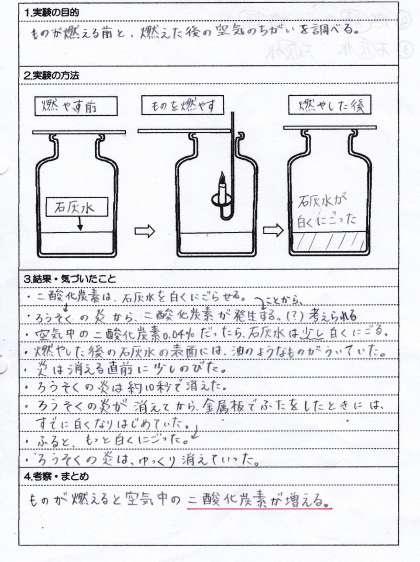 1.実験の目的
ものが燃える前と、燃えた後の空気のちがいを調べる。
2.実験の方法
燃やす前
ものを燃やす
燃やした後
石灰水
石灰水が
白くにごった
3.結果・気づいたこと
・二酸化炭素は、石灰水を白くにごらせる。
ことから、
・ろうそくの炎から、二酸化炭素が発生する。(?)考えられる
・空気中の二酸化炭素0.04%だったら、石灰水は少し白くにごる。
・燃やした後の石灰水の表面には、油のようなものがういていた。
・炎は消える直前に少しのびた。
・ろうそくの炎は約10秒で消えた。
・ろうそくの炎が消えてから、金属板でふたをしたときには、
すでに白くなりはじめていた。
・ふると、もっと白くにごった。
・ろうそくの炎は、ゆっくり消えていった。
4.考察・まとめ
ものが燃えると空気中の二酸化炭素が増える。